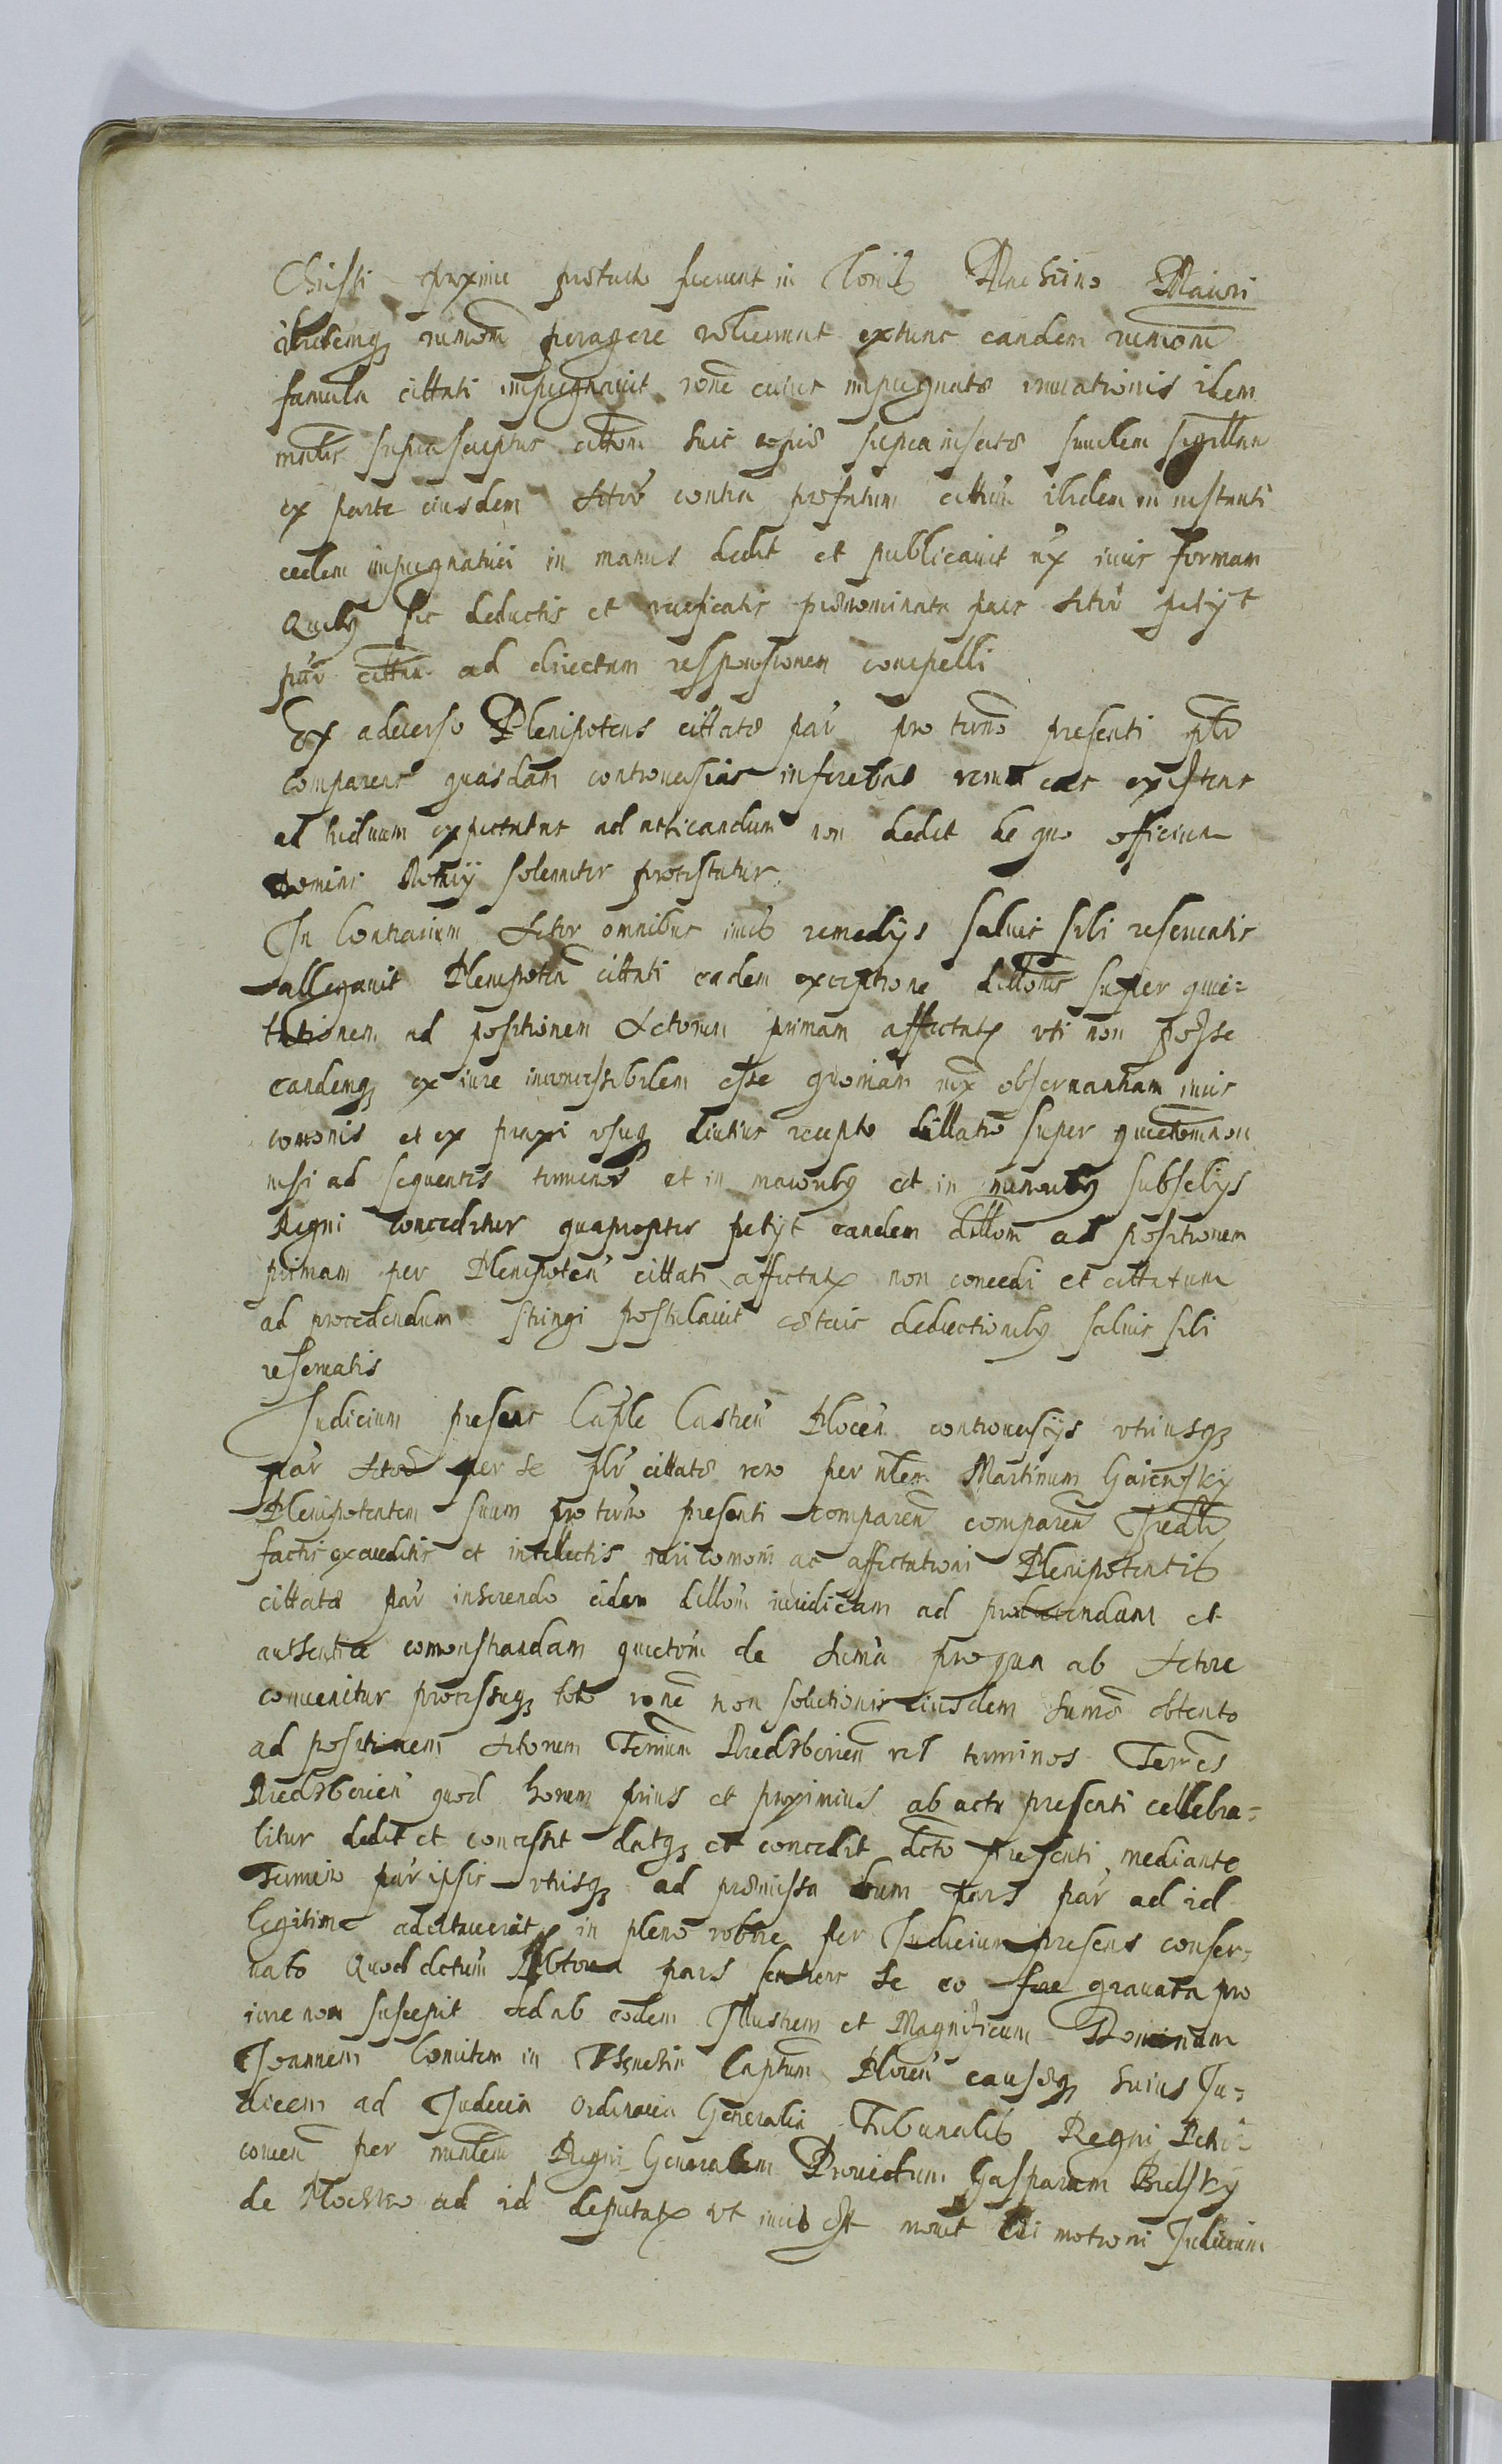 Christi proxime preterito fecerunt in bonis Mauri
ibidemq peragere voluerunt extunc eandem
famula cittati impugnavit rone cuius impugnatae ilem
mnlis suprascriptus suis copiae suprainsertae simulem sigillum
ex parte eiusdem Actor contra prefatum cittum ibidem in instanti
eidem impugnatrici in manus dedit et publicavit iux iuris formam
Quibq sic deductis et verificatis praenominata pars Actor petijt
par cittam ad directam responsionem compelli
Ex adverso Plenipotens cittatae par pro termo presenti
comparens quasdam controversias inferebat existens
et triduum ad non dedit de quo officium
Domini Notarij solenniter protestatur
In Contrarium Actor omnibus iuris remedijs salvis sibi reservatis
allegavit Plenipotem cittati eadem exceptione dillonis super quie=
tationem ad positionem Actoream primam affectata uti non posse
eandemq ex iure inconcessibilem esse quoniam iux observantiam iuris
comonis et ex praxi usuq diutius recepto dillatio super quietom non
nisi ad sequentes terminos et in maioribq et in minoribq subselijs
Regni conceditur quapropter petijt eandem dillom ad positionem
primam per Plenipoten cittati affectatam non concedi et cittatum
ad procedendum stringi postulavit caeteris deductionibq salvis sibi
reservatis
Judicium presens Caple Castren Plocen controversijs utriusq
par Actoreae per se cittatae vero per nlem Martinum Gaiewsky
Plenipotentem suum pro termo presenti comparen comparen
factis exauditis et intellectis iuri comoni ac affectationi Plenipotentis
cittatae par inherendo eidem dillom iuridicam ad producendam et
authentice comonstrandam quietom de suma pro qua ab Actore
convenitur processuq toto rone non solutionis eiusdem sumae obtento
ad positionem Actoream Termum vel terminos Terres
quod horum prius et proximius ab actu presenti cellebra=
bitur dedit et concessit datq et concedit dcto presenti mediante
Termino par ipsis utrisq ad praemissa dum pars par ad id
legitime adcitaverit in pleno robore per Judicium presens conser=
vato Quod dctum Actorea pars sentiens se eo fore gravata pro
iure non suscepit sed ab eodem Illustrem et Magnificum Dominum
Joannem Comitem in Captum Plocen causaeq huius Ju=
dicem ad Judicia Ordinaria Generalia Tribunalis Regni
conven per mnlem Regni Generalem Providum Gasparem Bielsky
de ad id deputatum ut iuris est movit Cui motioni Judicium